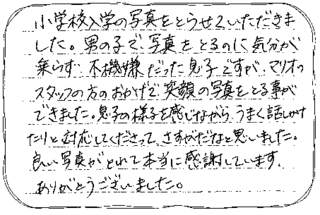 小学校入学の写真をとらせていただきま
した。男の子で、写真をとるのに気分が
乗らず、不機嫌だった息子ですが、マリオの
スタッフの方のおかげで笑顔の写真をとる事が
できました。息子の様子を感じながら、うまく話しかけ
たりと対応してくださって、さすがだなと思いました。
良い写真がとれて本当に感謝しています。
ありがとうございました。